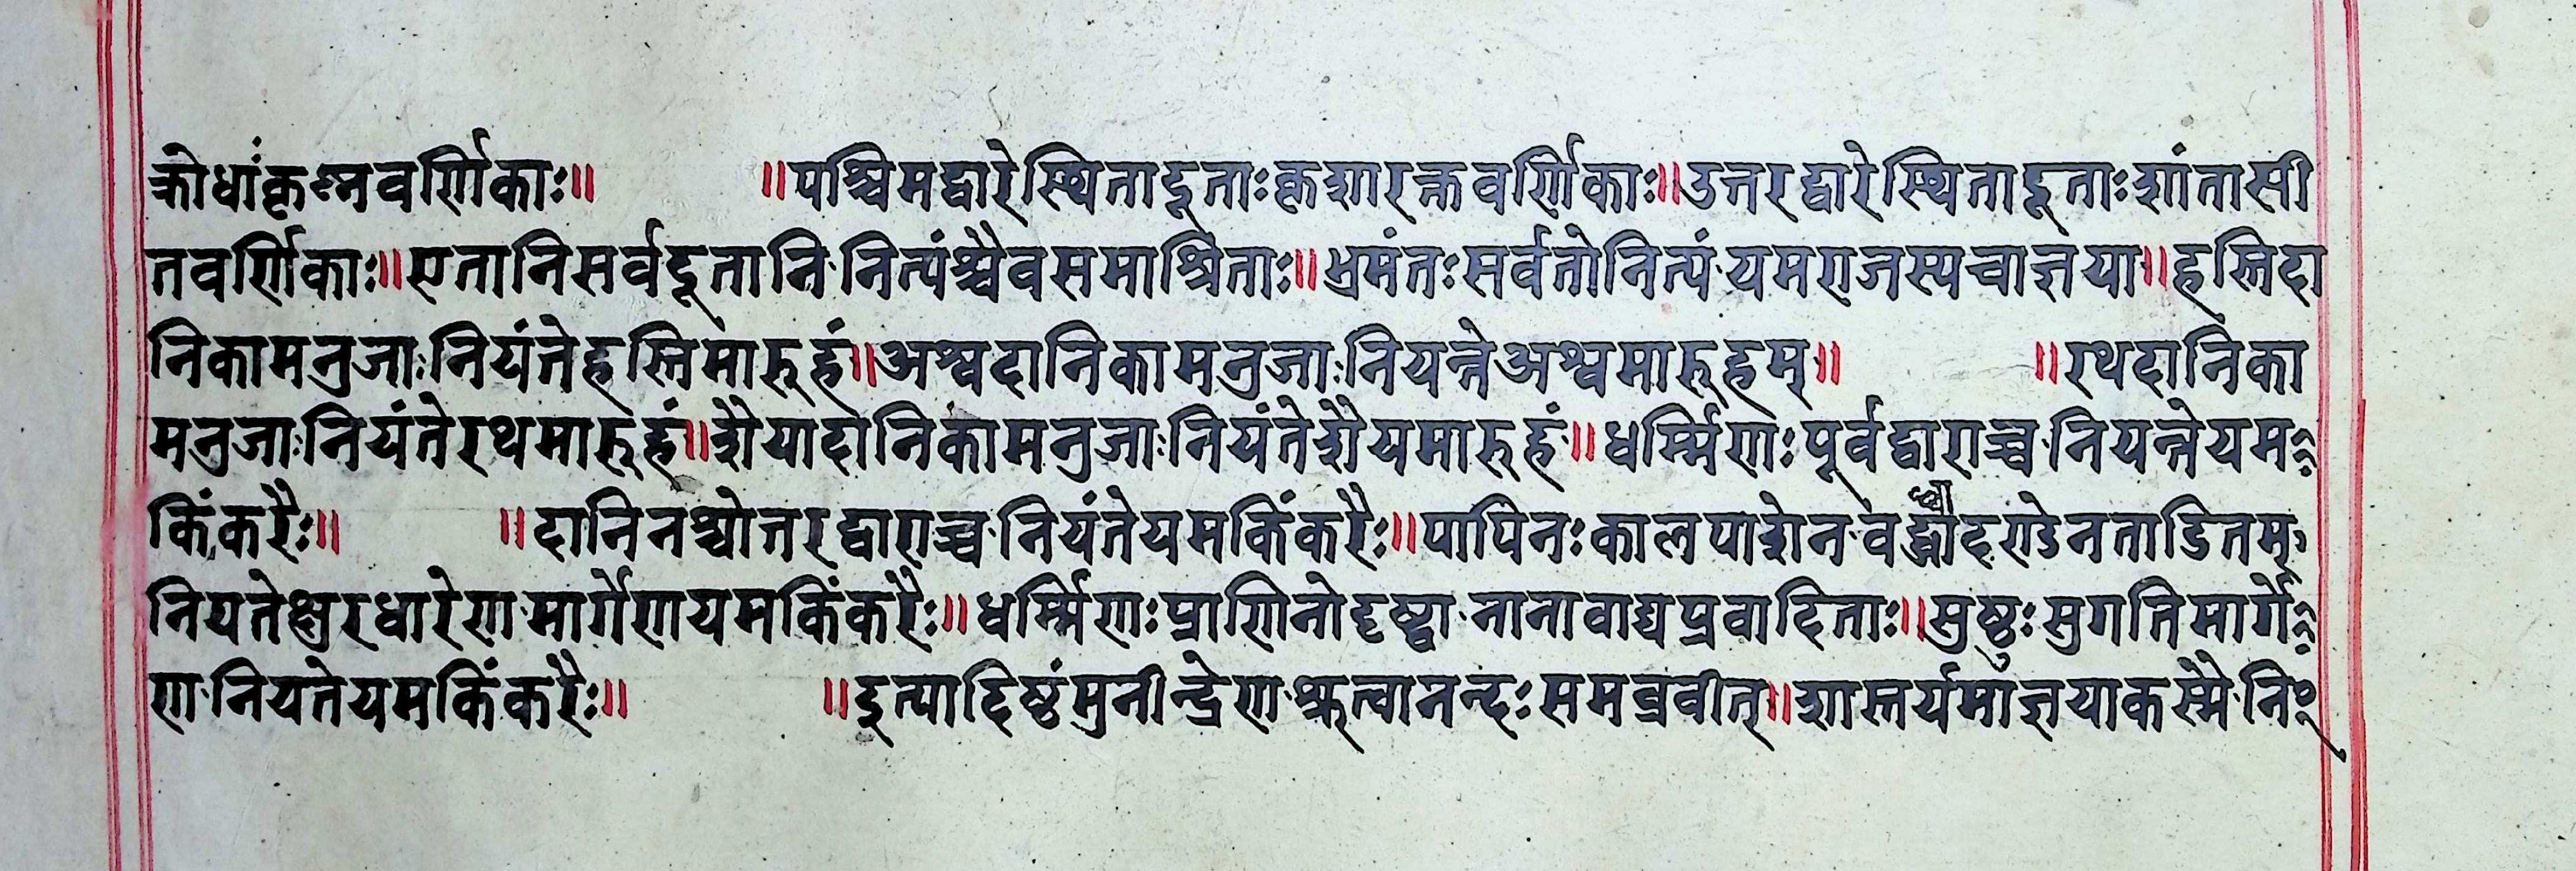 क्रोधांकृष्नवर्णिकाः॥ ॥पश्चिमद्वारेस्थितादूताःकृशारक्तवर्णिकाः॥उत्तरद्वारेस्थितादूताःशांतासी
तवर्णिकाः॥एतानिसर्वदूतानि·नित्यंश्चैवसमाश्रिताः॥भ्रमंतःसर्वतोनित्यं·यमराजस्यचाज्ञया॥हस्तिदा
निकामनुजाः·नियंतेहस्तिमारुहं॥अश्वदानिकामनुजाः·नियन्तेअश्वमारुहम्॥ ॥रथदानिका
मनुजाः·नियंतेरथमारुहं॥शैयादानिकामनुजाः·नियंतेशैयमारुहं॥धर्म्मिणःपूर्वद्वाराच्च·नियन्तेयम
किंकरैः॥ ॥दानिनश्चोत्तरद्वाराच्च·नियंतेयमकिंकरैः॥पापिनःकालपाशेन·वद्ध्वौदण्डेनताडितम्
नियतेक्षुरधारेण·मार्गेणयमकिंकरैः॥धर्म्मिणःप्राणिनोदृष्ट्वा·नानावाद्यप्रवादिताः॥सुष्ठुःसुगतिमार्गे
ण·नियतेयमकिंकरैः॥ ॥इत्यादिष्ठंमुनीन्द्रेण·श्रुत्वानन्दःसमव्रवीत्॥शास्तर्यमाज्ञयाकस्मै·नि